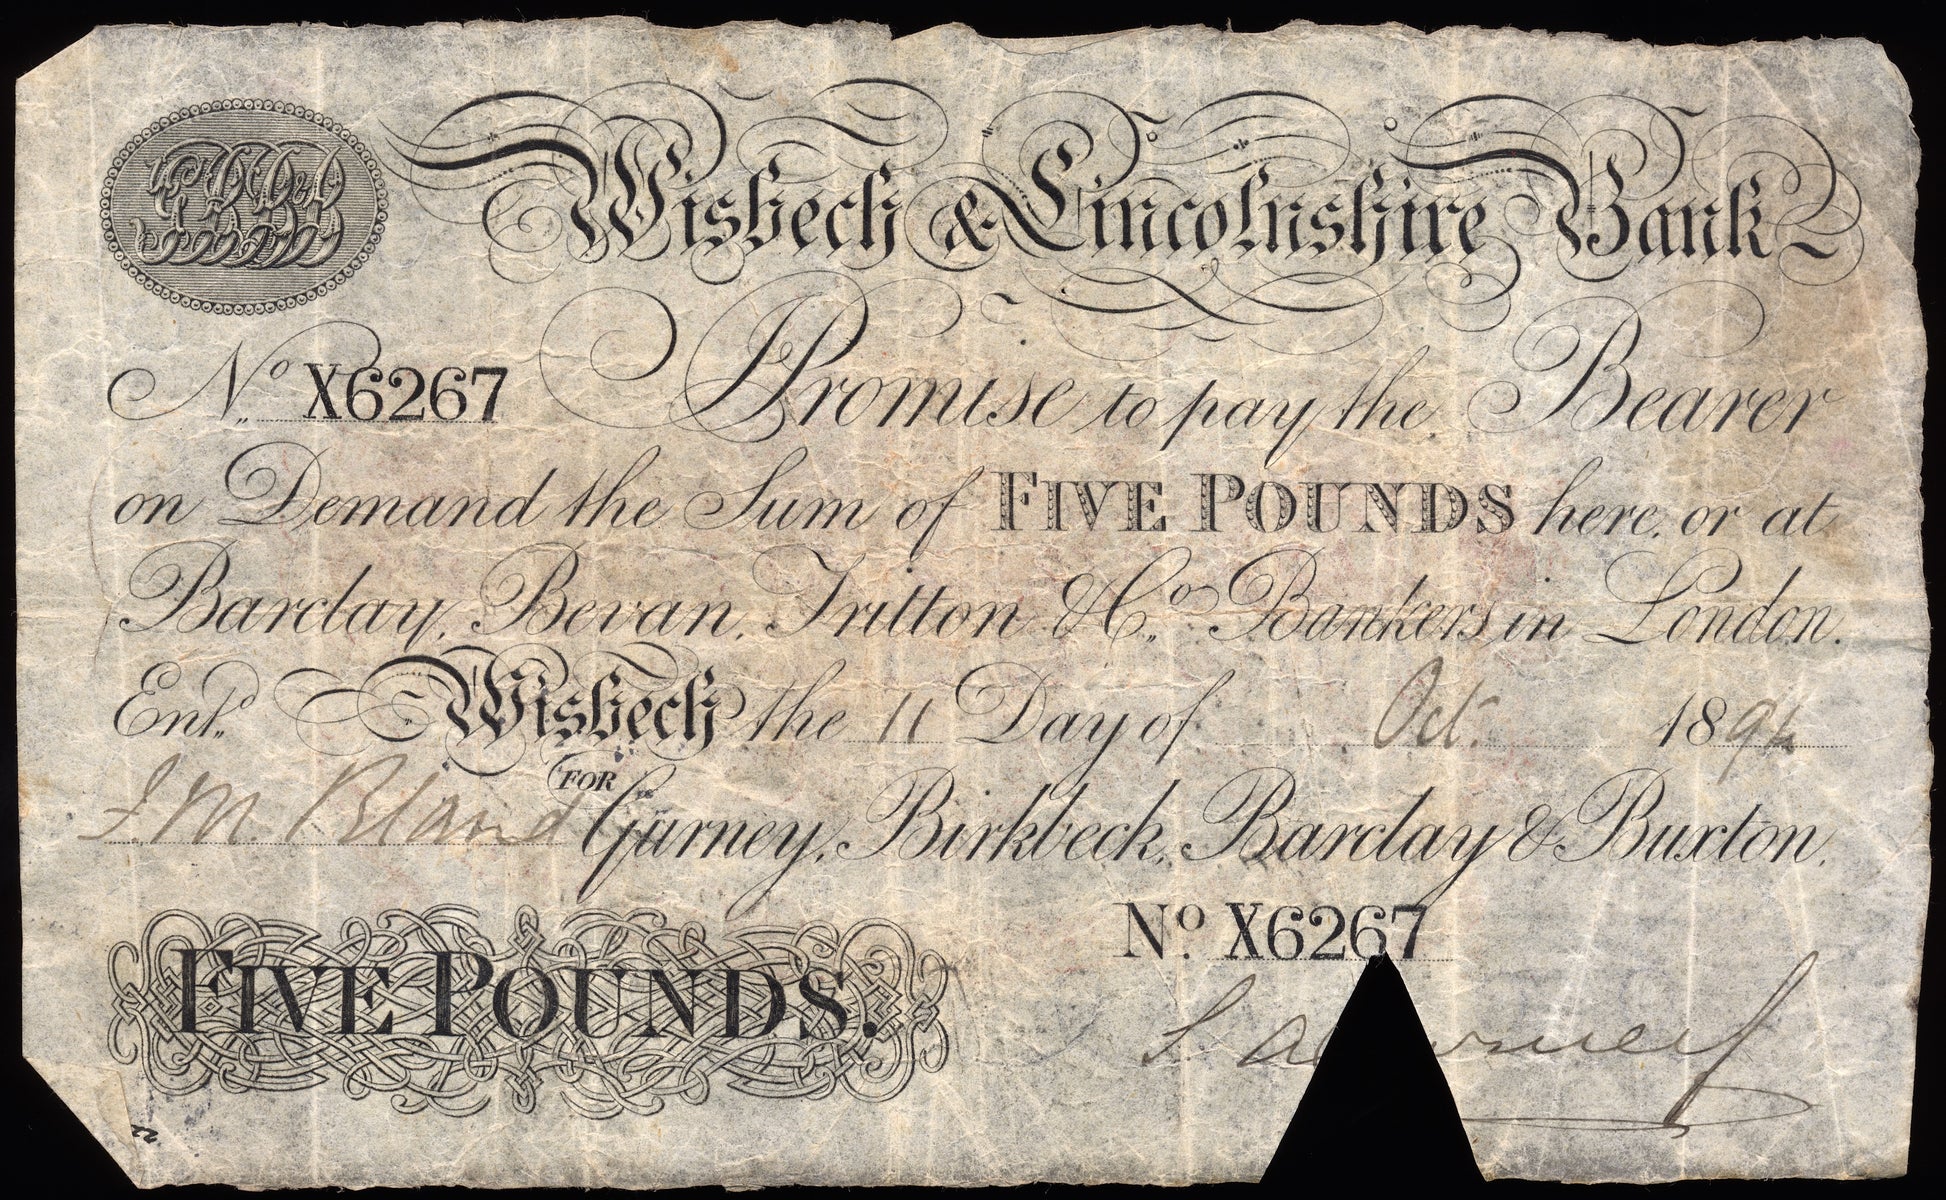 Wisbech & Lincolnshire Bank
No. X6267 Promise to pay the Bearer
on Demand the Sum of FIVE POUNDS here, or at
Barclay, Bevan, Tritton & Co. Bankers in London.
Entd. Wisbech the 11 Day of Oct. 1894
J M Bland FOR Gurney, Birkbeck, Barclay & Buxton.
No. X6267
FIVE POUNDS.